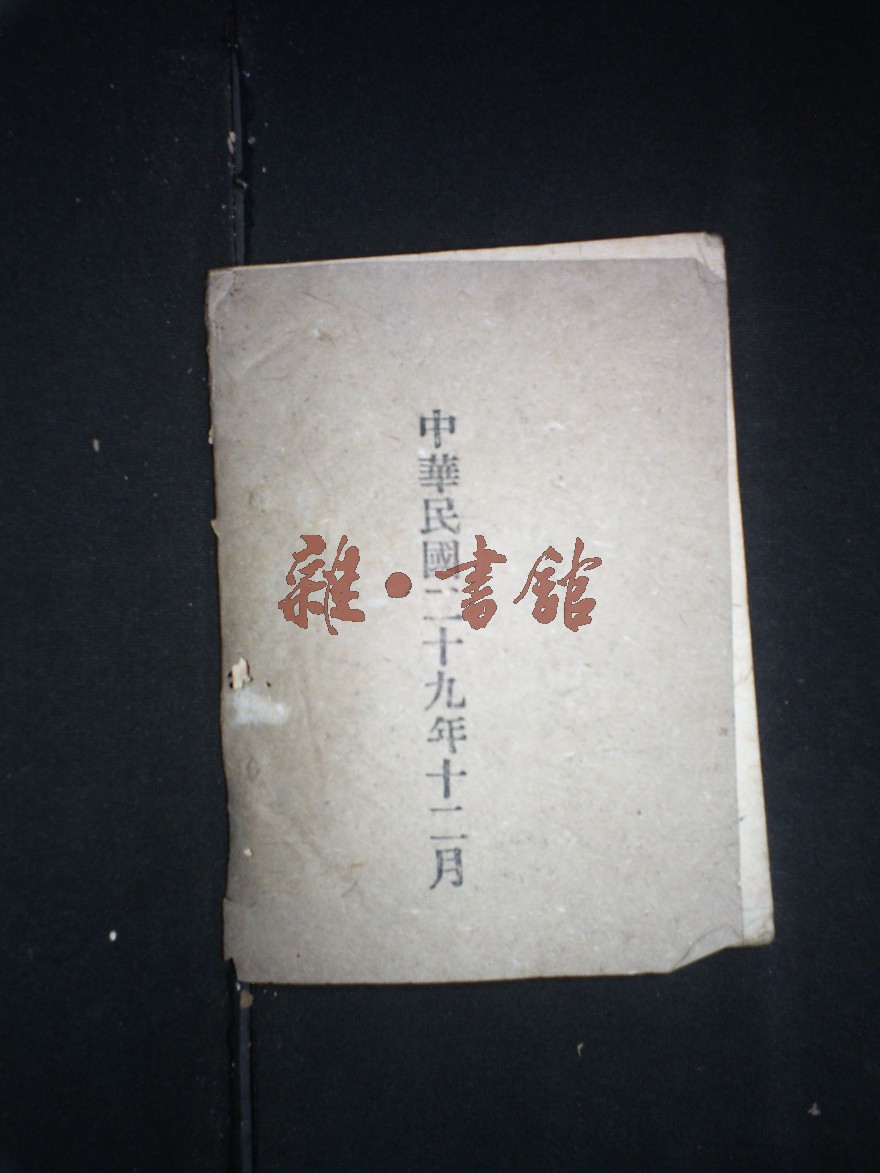 中華民國二十九年十二月
雜·書館